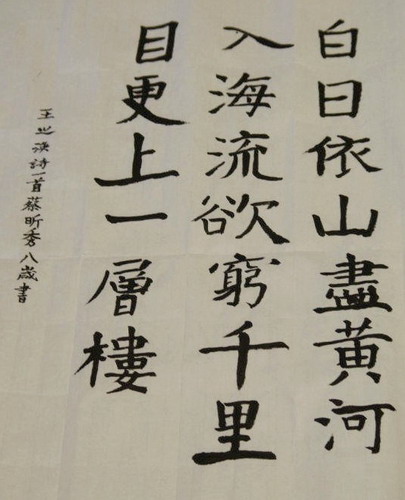 白日依山盡黃河
入海流欲窮千里
目更上一層樓
王之渙詩一首蔡昕秀八歲書